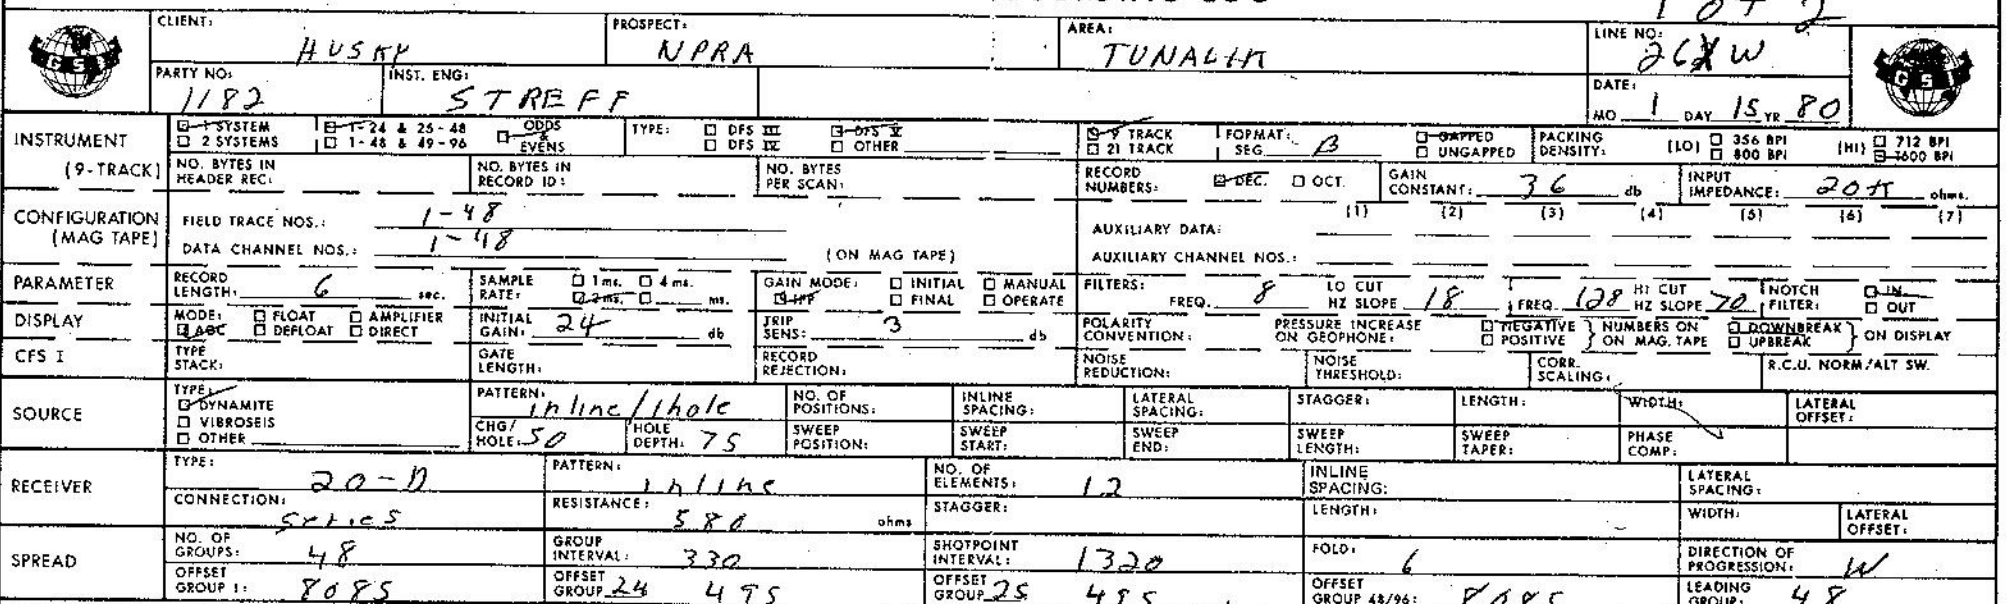 1 of 2
CLIENT: HUSKY PROSPECT: NPRA AREA: TUNALIK LINE NO: 26X W
GSI
PARTY NO: 1182 INST. ENG: STREFF DATE: MO 1 DAY 15 YR 80
INSTRUMENT (9-TRACK) 1 SYSTEM 1-24 & 25-48 ODDS & EVENS TYPE: DFS III DFS V 9 TRACK FORMAT: SEG B GAPPED PACKING DENSITY: (LO) 356 BPI (HI) 712 BPI
2 SYSTEMS 1-48 & 49-96 DFS IV OTHER 21 TRACK UNGAPPED 800 BPI 1600 BPI
NO. BYTES IN HEADER REC: NO. BYTES IN RECORD ID: NO. BYTES PER SCAN: RECORD NUMBERS: DEC. OCT. GAIN CONSTANT: 36 db INPUT IMPEDANCE: 20K ohms.
CONFIGURATION (MAG TAPE) FIELD TRACE NOS.: 1-48 AUXILIARY DATA: (1) (2) (3) (4) (5) (6) (7)
DATA CHANNEL NOS.: 1-48 (ON MAG TAPE) AUXILIARY CHANNEL NOS.:
PARAMETER RECORD LENGTH: 6 sec. SAMPLE RATE: 1 ms. 4 ms. 2 ms. ms. GAIN MODE: INITIAL MANUAL IFP FINAL OPERATE FILTERS: FREQ. 8 LO CUT HZ SLOPE 18 FREQ. 128 HI CUT HZ SLOPE 70 NOTCH FILTER: IN OUT
DISPLAY MODE: FLOAT AMPLIFIER AGC DEFLOAT DIRECT INITIAL GAIN: 24 db TRIP SENS: 3 db POLARITY CONVENTION: PRESSURE INCREASE ON GEOPHONE: NEGATIVE POSITIVE } NUMBERS ON MAG. TAPE DOWNBREAK UPBREAK } ON DISPLAY
CFS I TYPE STACK: GATE LENGTH: RECORD REJECTION: NOISE REDUCTION: NOISE THRESHOLD: CORR. SCALING: R.C.U. NORM/ALT SW.
SOURCE TYPE: DYNAMITE VIBROSEIS OTHER PATTERN: inline/1hole NO. OF POSITIONS: INLINE SPACING: LATERAL SPACING: STAGGER: LENGTH: WIDTH: LATERAL OFFSET:
CHG/HOLE: 50 HOLE DEPTH: 75 SWEEP POSITION: SWEEP START: SWEEP END: SWEEP LENGTH: SWEEP TAPER: PHASE COMP:
RECEIVER TYPE: 20-D PATTERN: inline NO. OF ELEMENTS: 12 INLINE SPACING: LATERAL SPACING:
CONNECTION: series RESISTANCE: 580 ohms STAGGER: LENGTH: WIDTH: LATERAL OFFSET:
SPREAD NO. OF GROUPS: 48 GROUP INTERVAL: 330 SHOTPOINT INTERVAL: 1320 FOLD: 6 DIRECTION OF PROGRESSION: W
OFFSET GROUP 1: 8085 OFFSET GROUP 24 495 OFFSET GROUP 25 495 OFFSET GROUP 48/96: 8085 LEADING GROUP: 48